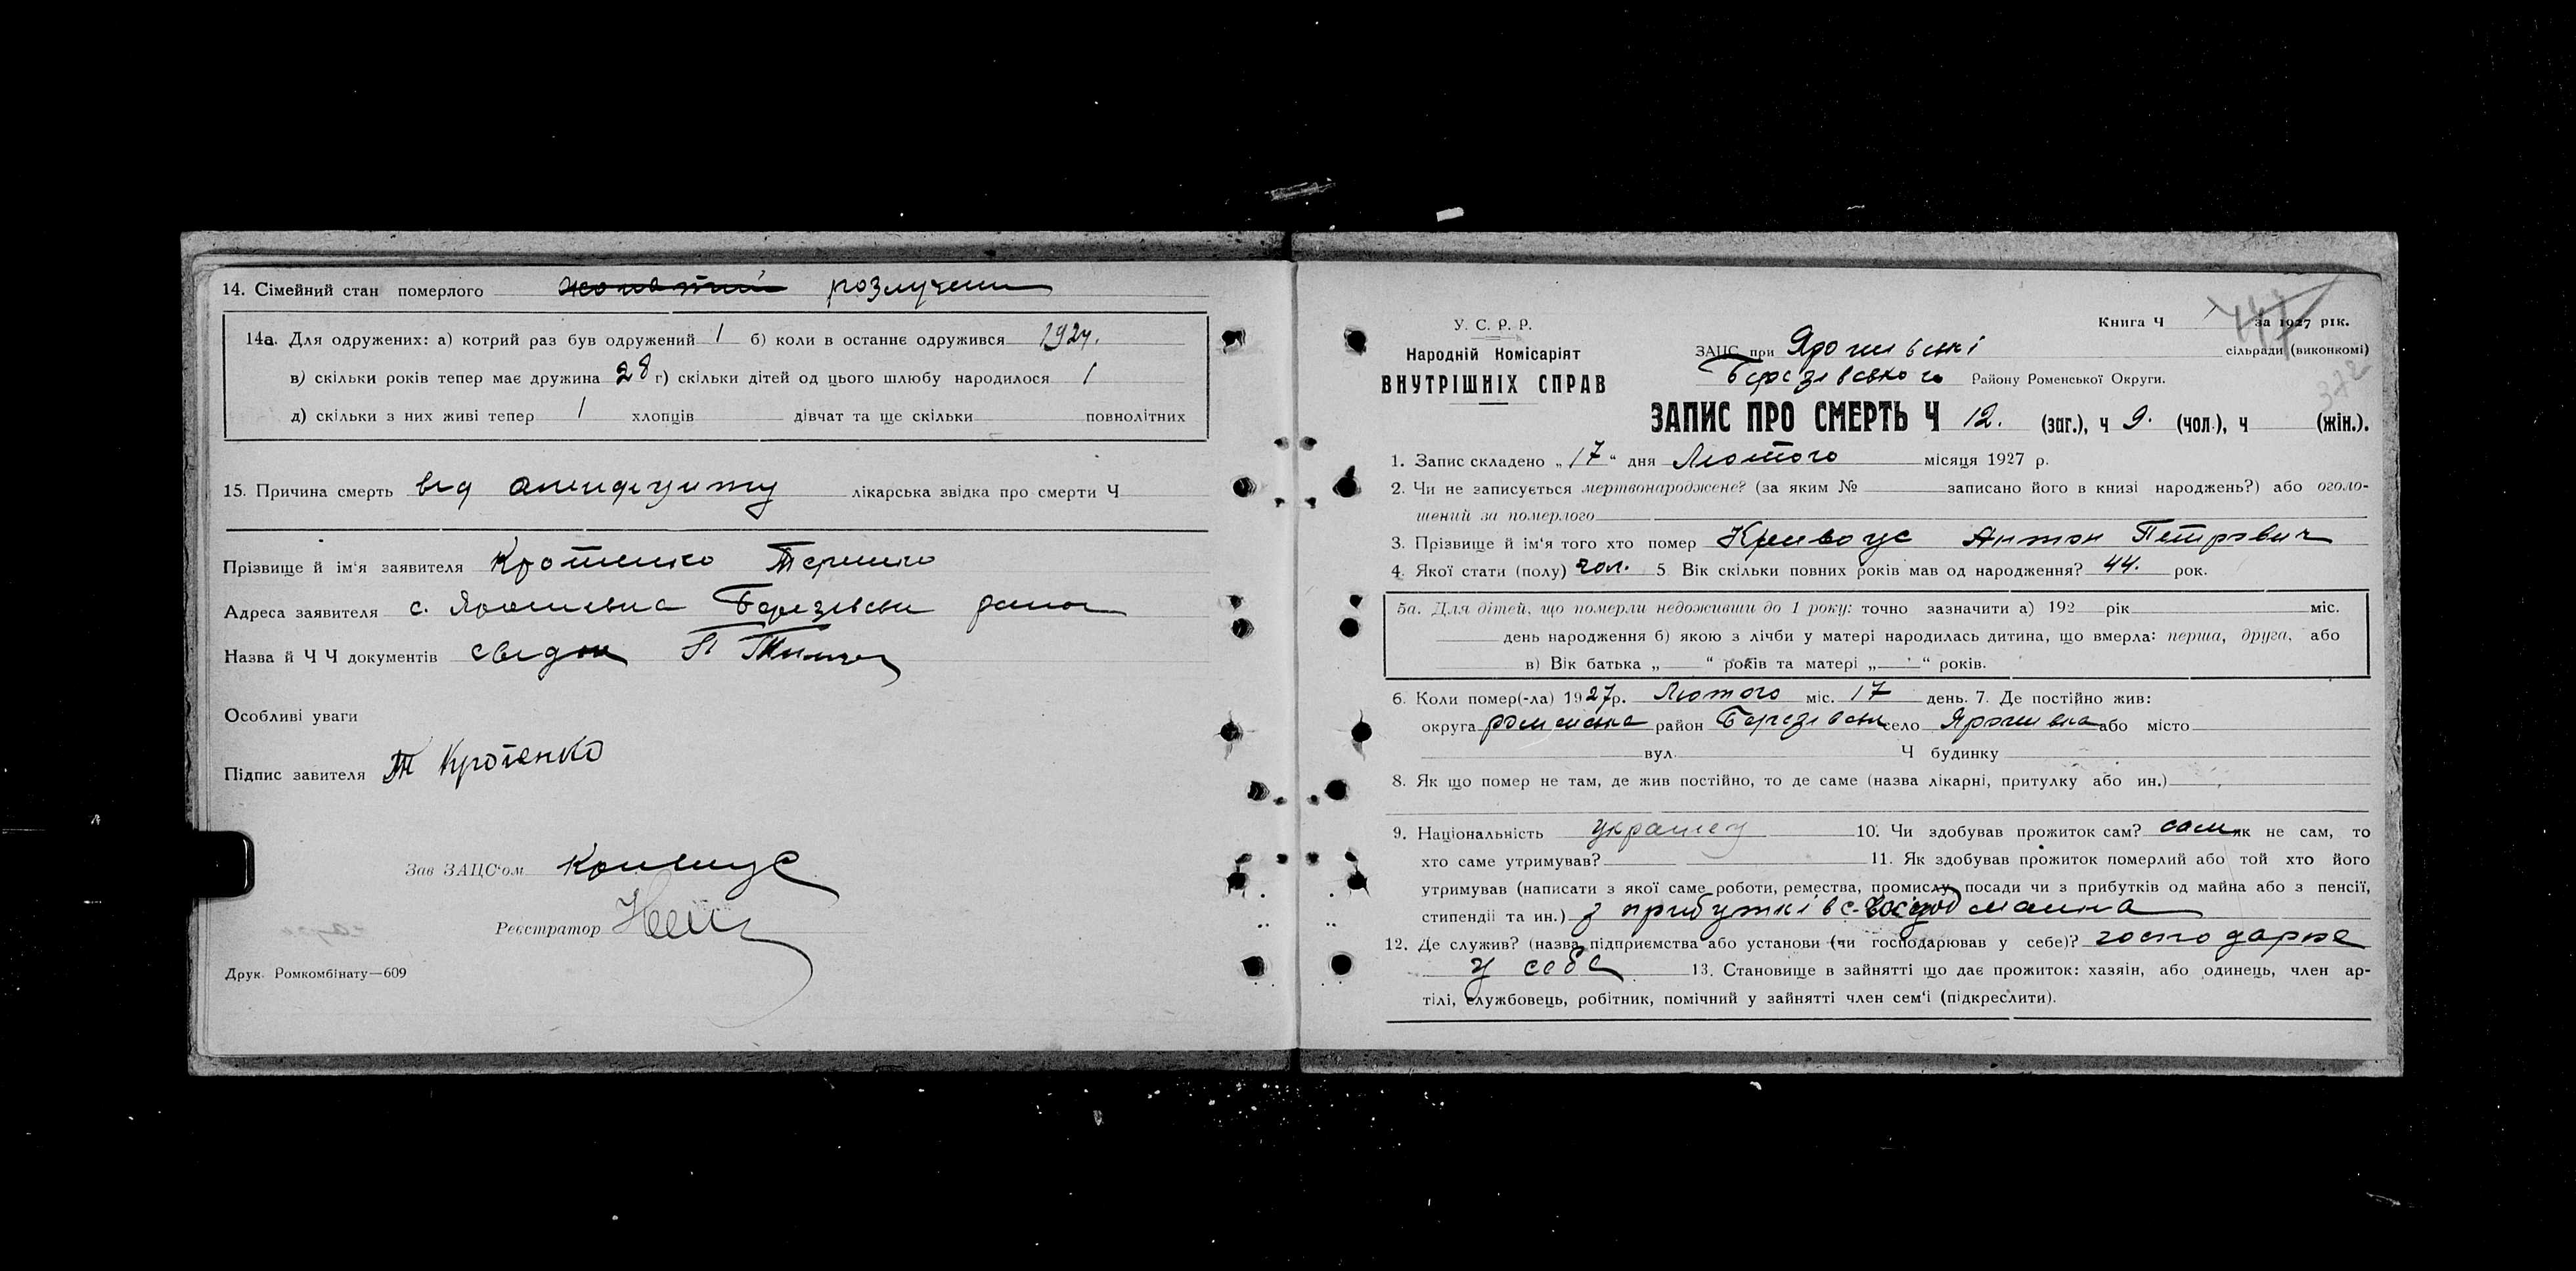 14. Сімейний стан померлого жонатий розлучени
14а. Для одружених: а) котрий раз був одружений 1 б) коли в останнє одружився 1924.
в) скільки років тепер має дружина 28 г) скільки дітей од цього шлюбу народилося 1
д) скільки з них живі тепер 1 хлопців дівчат та ще скільки повнолітних
15. Причина смерть від апендициту лікарська звідка про смерти Ч
Прізвище й ім'я заявителя Кротенко
Адреса заявителя с. Ярошівка Березівськ
Назва й Ч Ч документів
Особливі уваги
Підпис завителя Т Кротенко
Зав ЗАЦС'ом
Реєстратор
Друк. Ромкомбінату—609
У. С. Р. Р.
Народній Комісаріят
ВНУТРІШНІХ СПРАВ
Книга Ч за 1927 рік.
ЗАЦС при Ярошивські сільради (виконкомі)
Березівського Району Роменської Округи.
ЗАПИС ПРО СМЕРТЬ Ч 12. (заг.), ч 9. (чол.), ч (жін.).
1. Запис складено „17" дня Лютого місяця 1927 р.
2. Чи не записується мертвонароджене? (за яким № записано його в книзі народжень?) або оголо-
шений за померлого
3. Прізвище й ім'я того хто помер Кривоус Антон Петрович
4. Якої стати (полу) чол. 5 Вік скільки повних років мав од народження? 44. рок.
5а. Для дітей, що померли недоживши до 1 року: точно зазначити а) 192 рік міс.
день народження б) якою з лічби у матері народилась дитина, що вмерла: перша, друга, або
в) Вік батька „ " років та матері „ " років.
6. Коли помер(-ла) 1927р. Лютого міс. 17 день. 7. Де постійно жив:
округа роменська район Березівськ село Ярошивка або місто
вул. Ч будинку
8. Як що помер не там, де жив постійно, то де саме (назва лікарні, притулку або ин.)
9. Національність українец 10. Чи здобував прожиток сам? сам як не сам, то
хто саме утримував? 11. Як здобував прожиток померлий або той хто його
утримував (написати з якої саме роботи, ремества, промислу, посади чи з прибутків од майна або з пенсії,
стипендії та ин.) з прибутків с-
12. Де служив? (назва підприємства або установи (чи господарював у себе)? господарює
у себе 13. Становище в зайнятті що дає прожиток: хазяін, або одинець, член ар-
тілі, службовець, робітник, помічний у зайнятті член сем'і (підкреслити).